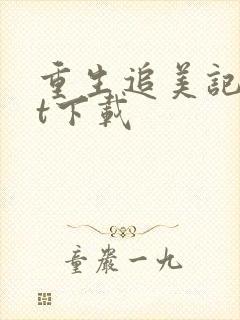 重生追美記
t下載
童嚴一九